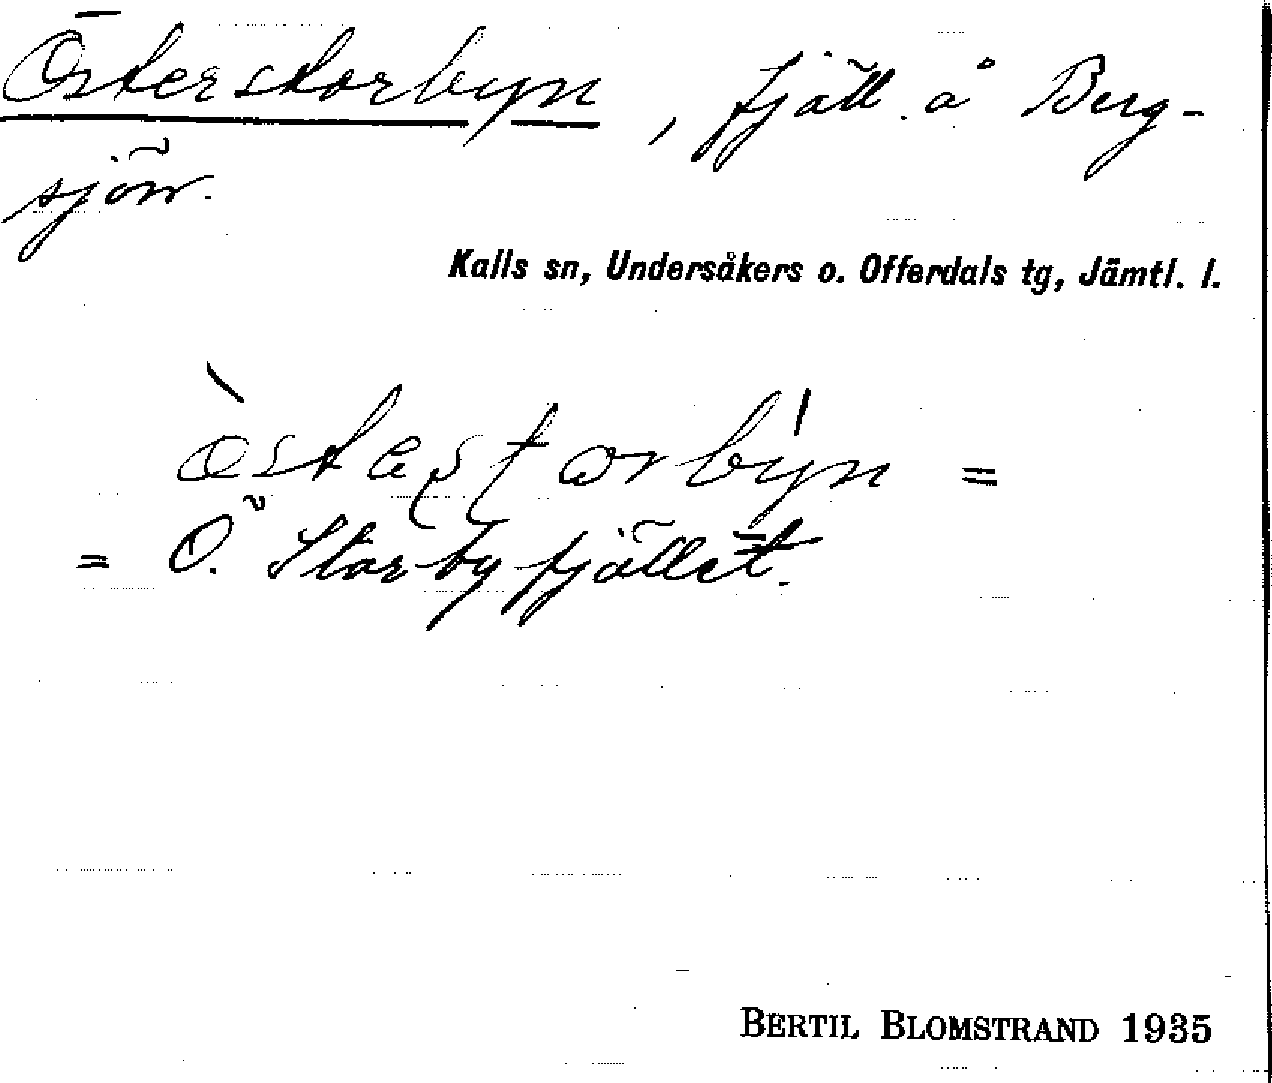 Österstorbyn, fjäll å Berg-
sjön.
Kalls sn, Undersåkers o. Offerdals tg, Jämtl. l.
=
= Ö. Storbyfjället.
BERTIL BLOMSTRAND 1935